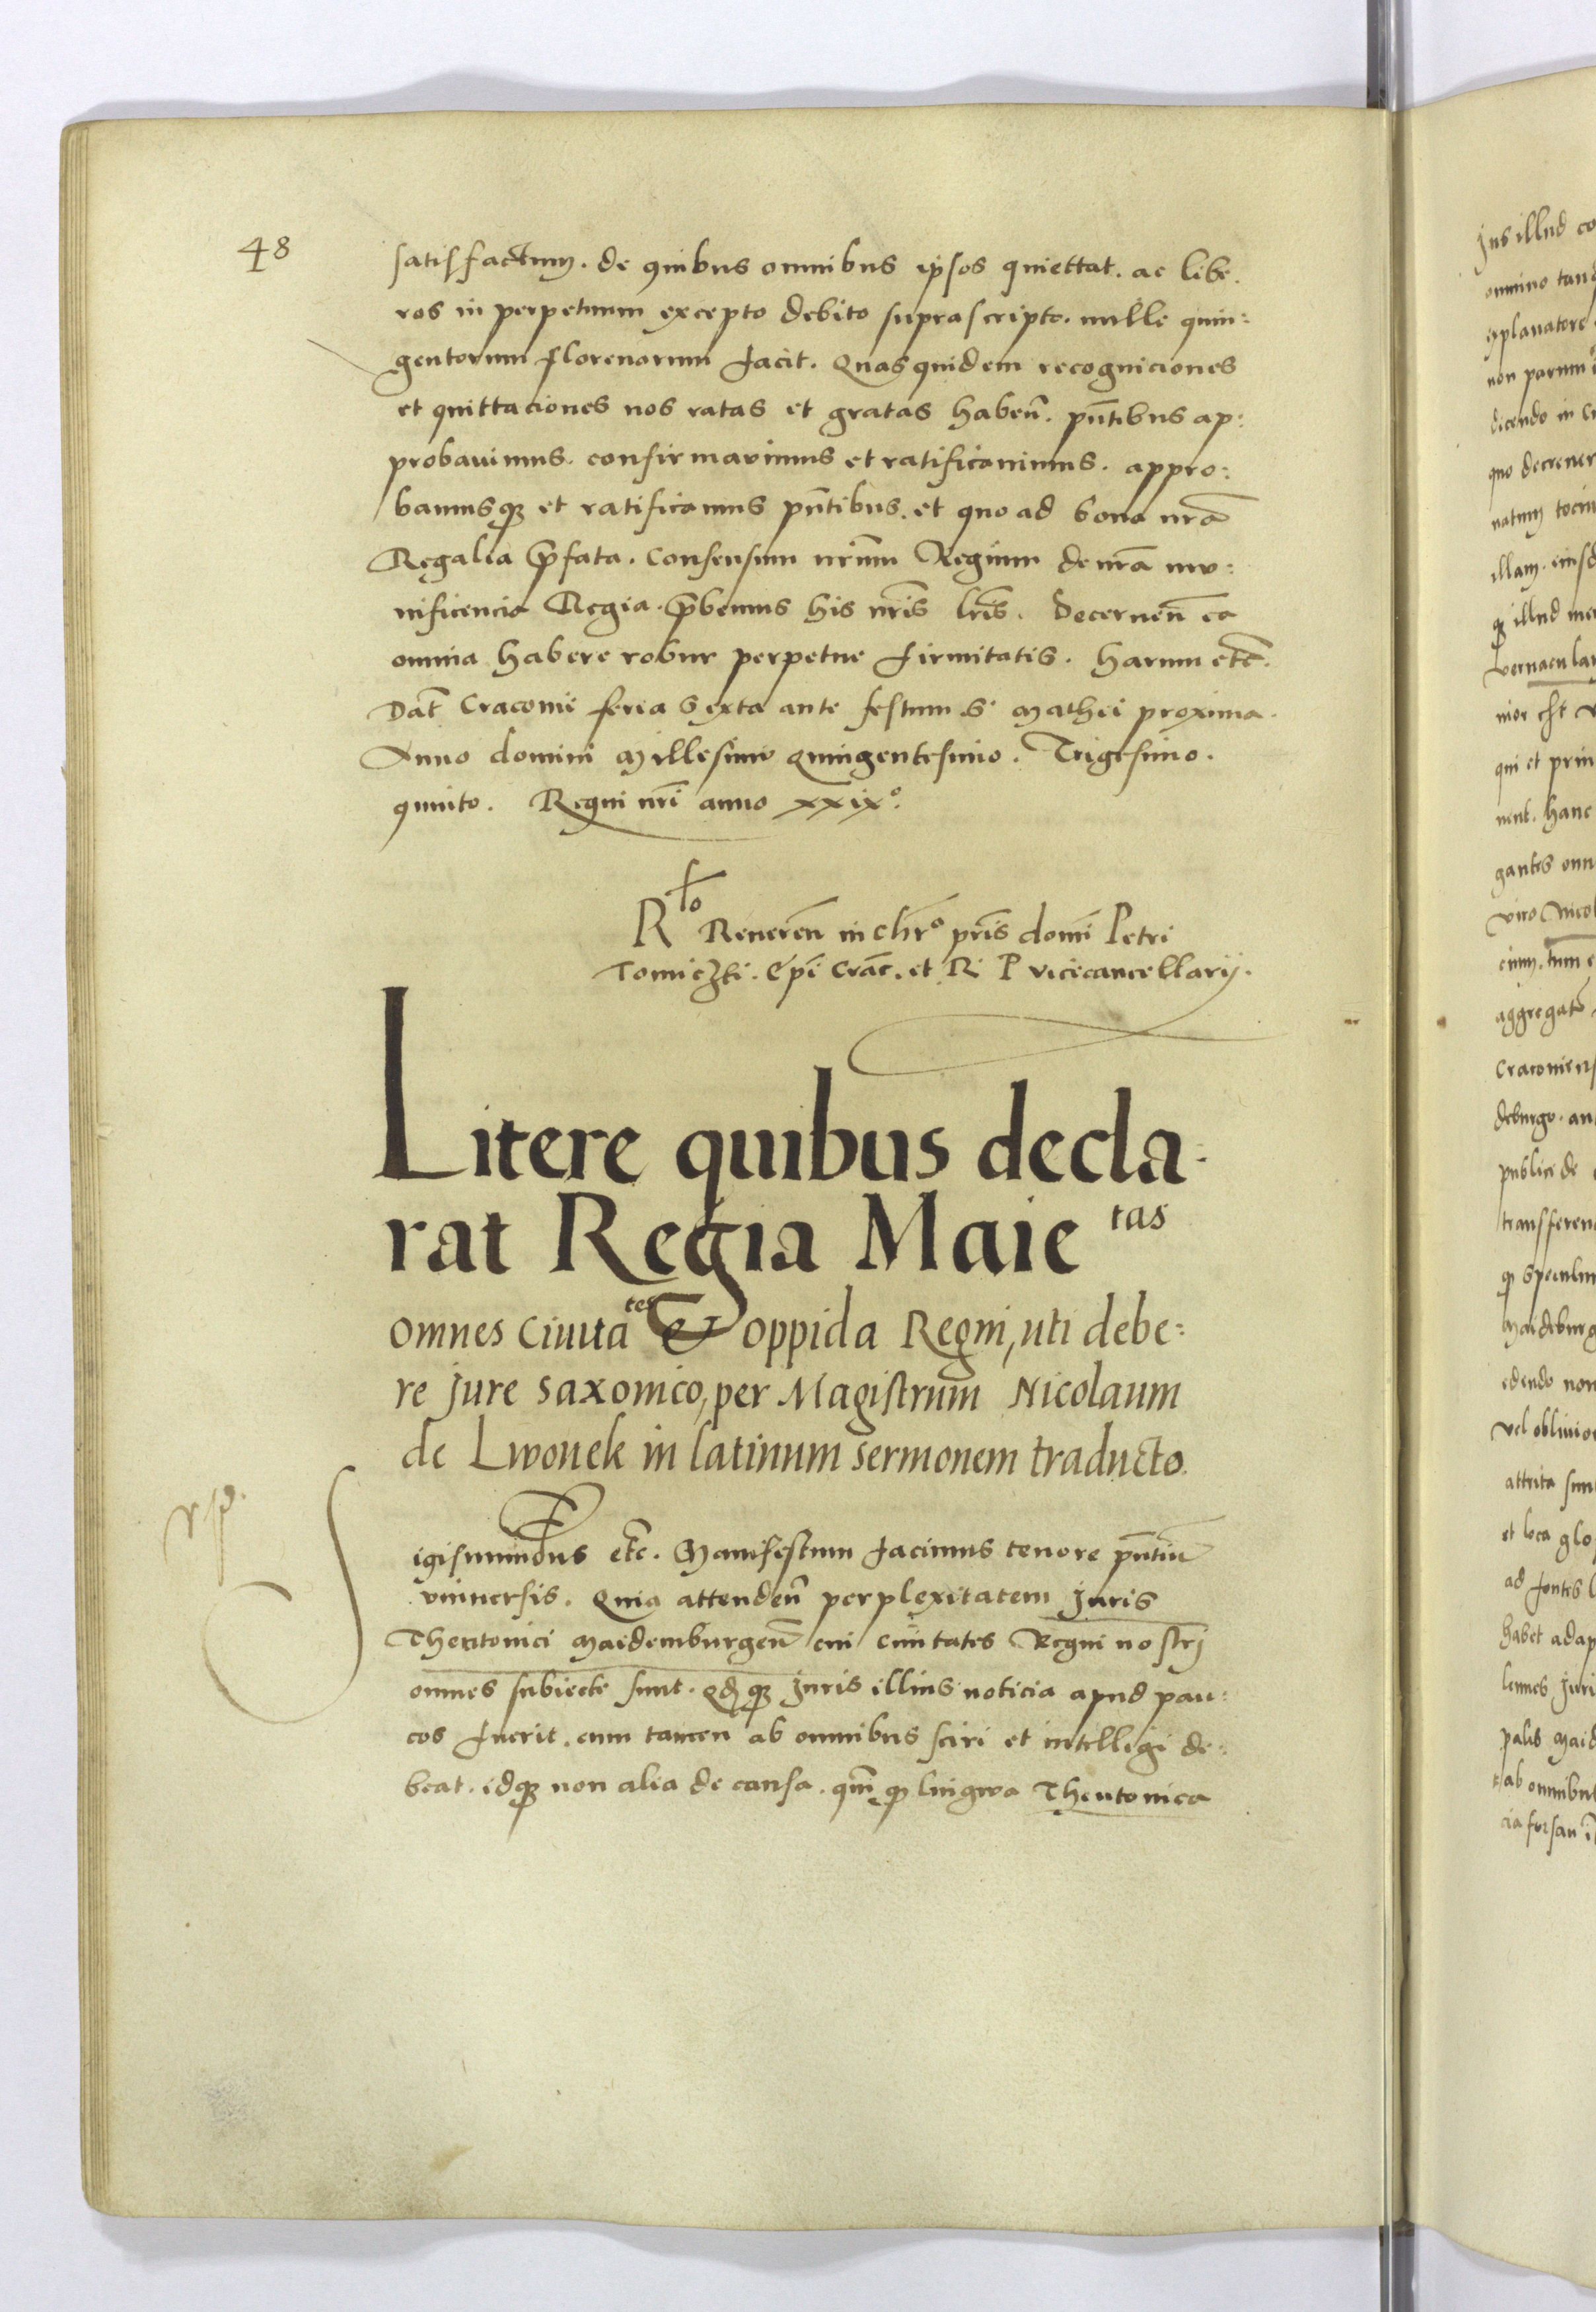 48
satisfactum. de quibus omnibus ipsos quiettat. ac libe.
ros in perpetuum excepto debito suprascripto. mille quin:
gentorum florenorum facit. Quasquidem recogniciones
et quittaciones nos ratas et gratas haben̄. pn̄tibus ap:
probauimus. confirmauimus et ratificauimus. appro:
bamusqꝫ et ratificamus pn̄tibus. et quo ad bona nrā
Regalia p̄fata. Consensum nrūm Regium de nrā mu:
nificencia Regia. p̄bemus his nrīs lrīs. Decernen̄ ea
omnia habere robur perpetue firmitatis. Harum etc̄.
Dat̄ Cracouie feria Sexta ante festum S. Mathei proxima.
Anno domini Millesimo Quingentesimo. Trigesimo.
quinto. Regni nrī anno xxixº.
Rᵗᵒ Reueren̄ in chr̄º prīs domī Petri
Tomiczki. Epī Crac̄. et R. P vicecancellarij.
Litere quibus decla:
rat Regia Maie tas
omnes Ciuita tes & oppida Regni, uti debe:
re Jure Saxonico, per Magistrum Nicolaum
de Lwouek in latinum sermonem traducto.
Sigismundus etc̄. Manifestum facimus tenore pn̄tiū
vniuersis. Quia attenden̄ perplexitatem Juris
Theutonici Maidemburgen̄ cui ciuitates Regni nostrj
omnes subiecte sunt. qđqꝫ Juris illius noticia apud pau:
cos fuerit. cum tamen ab omnibus sciri et intelligi de:
beat. idqꝫ non alia de causa. qm̄ ꝙ lingwa Theutonica
Jus illud co
omnino tanq
explanatore
non parum
dicendo in
quo decreuer
natum
illam. eiusd
qꝫ illud
vernacular
nior est
qui et prin
nent. hanc
gantes omn
viro Nicol
cum
aggregato
Cracouien
deburgo. an
publice de
transferen
ꝙ Speculum
Maideburg
edendo non
vel obliuio
attrita sunt
et loca glo
ad fontes
habet adap
lennes Juri
palis Maid
ab omnibus
cia forsan